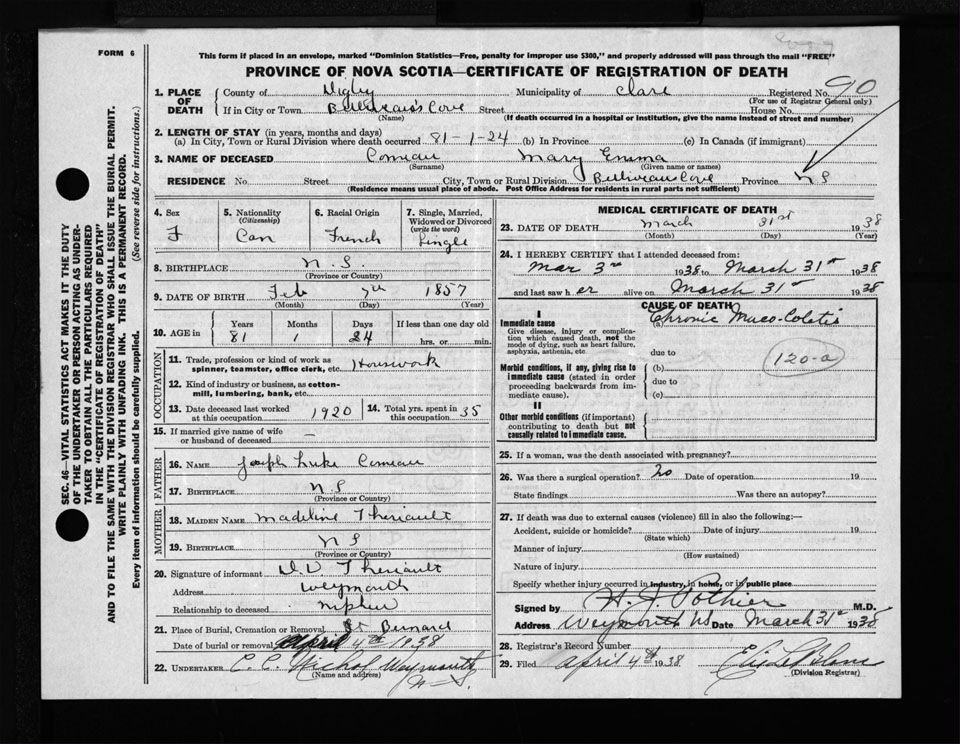 FORM 6
This form if placed in an envelope, marked "Dominion Statistics—Free, penalty for improper use $300," and properly addressed will pass through the mail "FREE"
PROVINCE OF NOVA SCOTIA—CERTIFICATE OF REGISTRATION OF DEATH
1. PLACE OF DEATH County of Digby Municipality of Clare Registered No. 90
(For use of Registrar General only)
If in City or Town Belliveau's Cove Street House No.
(Name) (If death occurred in a hospital or institution, give the name instead of street and number)
2. LENGTH OF STAY (in years, months and days)
(a) In City, Town or Rural Division where death occurred 81-1-24 (b) In Province (c) In Canada (if immigrant)
3. NAME OF DECEASED Comeau Mary Emma
(Surname) (Given name or names)
RESIDENCE No. Street City, Town or Rural Division Belliveau Cove Province N S
(Residence means usual place of abode. Post Office Address for residents in rural parts not sufficient)
4. Sex F
5. Nationality (Citizenship) Can
6. Racial Origin French
7. Single, Married, Widowed or Divorced (write the word) Single
8. BIRTHPLACE N. S.
(Province or Country)
9. DATE OF BIRTH Feb 7th 1857
(Month) (Day) (Year)
10. AGE in Years Months Days If less than one day old
81 1 24 hrs. or min.
OCCUPATION
11. Trade, profession or kind of work as spinner, teamster, office clerk, etc. Housework
12. Kind of industry or business, as cotton-mill, lumbering, bank, etc.
13. Date deceased last worked at this occupation 1920
14. Total yrs. spent in this occupation 35
15. If married give name of wife or husband of deceased —
FATHER
16. NAME Joseph Luke Comeau
17. BIRTHPLACE N. S
(Province or Country)
MOTHER
18. MAIDEN NAME Madeline Theriault
19. BIRTHPLACE N S
(Province or Country)
20. Signature of informant D V Theriault
Address Weymouth
Relationship to deceased nephew
21. Place of Burial, Cremation or Removal St Bernard
Date of burial or removal April 4th 1938
22. UNDERTAKER C. C. Nichol Weymouth
(Name and address) N. S.
MEDICAL CERTIFICATE OF DEATH
23. DATE OF DEATH March 31st 1938
(Month) (Day) (Year)
24. I HEREBY CERTIFY that I attended deceased from:
Mar 3rd 1938 to March 31st 1938
and last saw her alive on March 31st 1938
CAUSE OF DEATH
I
Immediate cause (a) Chronic Muco-Colitis
Give disease, injury or complication which caused death, not the mode of dying, such as heart failure, asphyxia, asthenia, etc.
due to
120-a
Morbid conditions, if any, giving rise to immediate cause (stated in order proceeding backwards from immediate cause).
(b)
due to
(c)
II
Other morbid conditions (if important) contributing to death but not causally related to immediate cause.
25. If a woman, was the death associated with pregnancy?
26. Was there a surgical operation? no Date of operation 19
State findings Was there an autopsy?
27. If death was due to external causes (violence) fill in also the following:—
Accident, suicide or homicide? Date of injury 19
(State which)
Manner of injury
(How sustained)
Nature of injury
Specify whether injury occurred in industry, in home, or in public place
Signed by H. J. Pothier M.D.
Address Weymouth NS Date March 31st 1938
28. Registrar's Record Number
29. Filed April 4th 1938
(Division Registrar)
SEC. 46—VITAL STATISTICS ACT MAKES IT THE DUTY
OF THE UNDERTAKER OR PERSON ACTING AS UNDER-
TAKER TO OBTAIN ALL THE PARTICULARS REQUIRED
IN THE "CERTIFICATE OF REGISTRATION OF DEATH"
AND TO FILE THE SAME WITH THE DIVISION REGISTRAR WHO SHALL ISSUE THE BURIAL PERMIT.
WRITE PLAINLY WITH UNFADING INK. THIS IS A PERMANENT RECORD.
Every item of information should be carefully supplied. (See reverse side for instructions.)